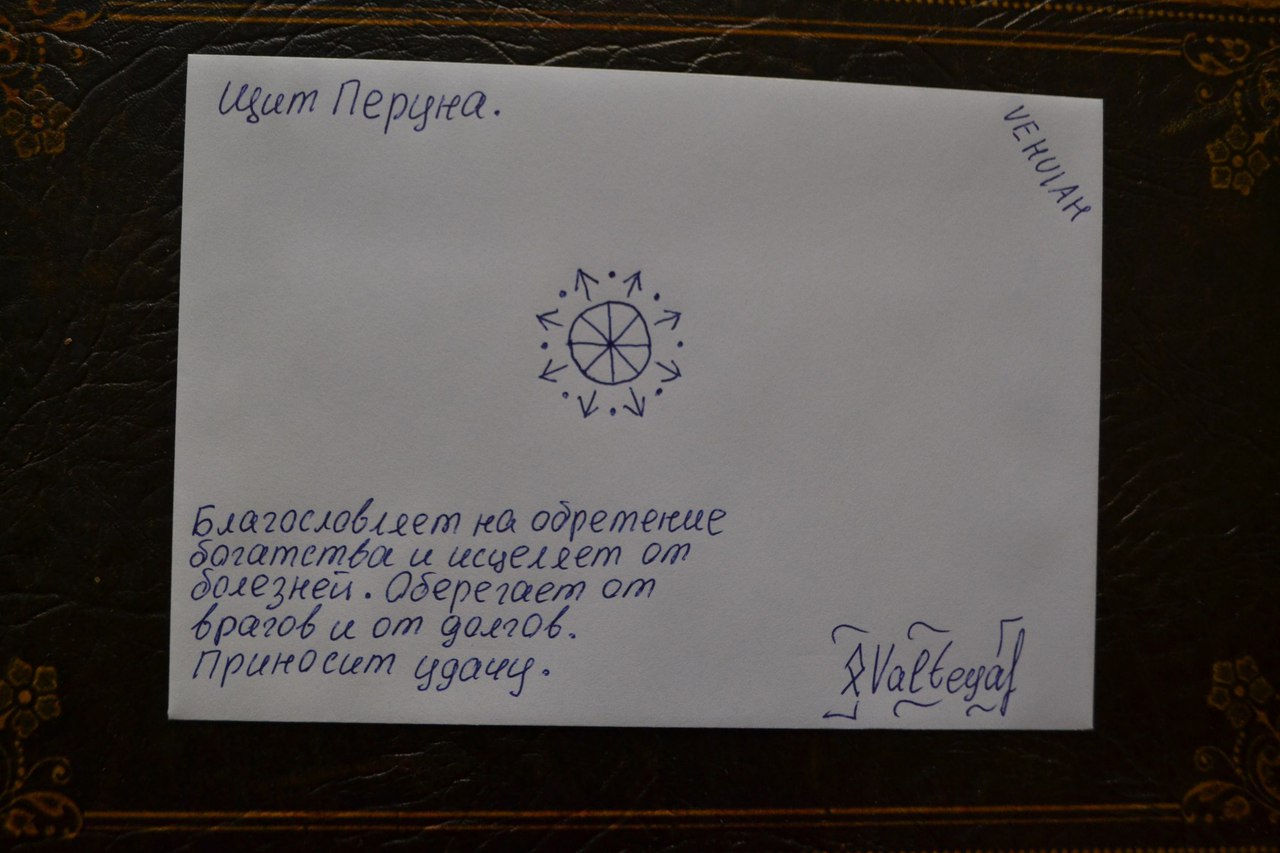 Щит Перуна.
VEHUIAH
Благословляет на обретение
богатства и исцеляет от
болезней. Оберегает от
врагов и от долгов.
Приносит удачу.
Valteyaf